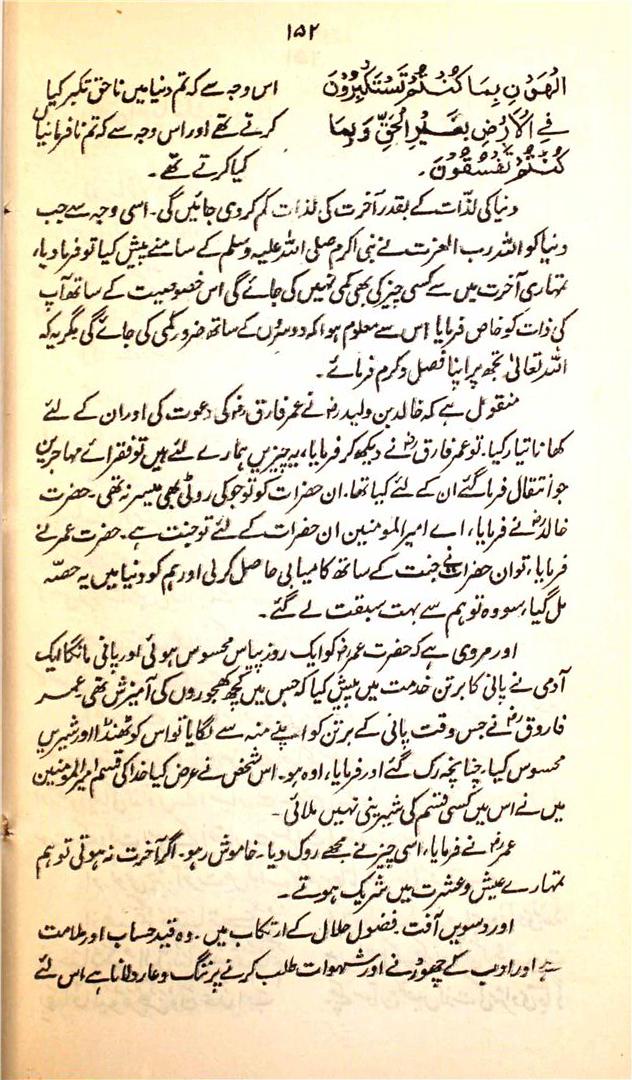 ۱۵۲
الْهَوْنِ بِمَا كُنْتُمْ تَسْتَكْبِرُوْنَ
فِي الْاَرْضِ بِغَيْرِ الْحَقِّ وَبِمَا
كُنْتُمْ تَفْسُقُوْنَ۔
اس وجہ سے کہ تم دنیا میں ناحق تکبر کیا
کرتے تھے اور اس وجہ سے کہ تم نافرمانیاں
کیا کرتے تھے۔
دنیا کی لذّات کے بقدر آخرت کی لذات کم کر دی جائیں گی۔ اسی وجہ سے جب
دنیا کو اللہ رب العزت نے نبی اکرم صلی اللہ علیہ وسلم کے سامنے پیش کیا تو فرما دیا،
تمہاری آخرت میں سے کسی چیز کی بھی کمی نہیں کی جائے گی اس خصوصیت کے ساتھ آپ
کی ذات کو خاص فرمایا اس سے معلوم ہوا کہ دوسروں کے ساتھ ضرور کمی کی جائے گی مگر یہ کہ
اللہ تعالیٰ تجھ پر اپنا فضل و کرم فرمائے۔
منقول ہے کہ خالد بن ولیدؓ نے عمر فاروقؓ کی دعوت کی اور ان کے لئے
کھانا تیار کیا۔ تو عمر فاروقؓ نے دیکھ کر فرمایا، یہ چیزیں ہمارے لئے ہیں تو فقرائے مہاجرین
جو انتقال فرما گئے ان کے لئے کیا تھا۔ ان حضرات کو تو جو کی روٹی بھی میسر نہ تھی۔ حضرت
خالدؓ نے فرمایا، اے امیر المومنین ان حضرات کے لئے تو جنت ہے۔ حضرت عمر نے
فرمایا، تو ان حضرات نے جنت کے ساتھ کامیابی حاصل کر لی اور ہم کو دنیا میں یہ حصّہ
مل گیا، سو وہ تو ہم سے بہت سبقت لے گئے۔
اور مروی ہے کہ حضرت عمرؓ کو ایک روز پیاس محسوس ہوئی اور پانی مانگا ایک
آدمی نے پانی کا برتن خدمت میں پیش کیا کہ جس میں کچھ کھجوروں کی آمیزش تھی عمر
فاروقؓ نے جس وقت پانی کے برتن کو اپنے منہ سے لگایا تو اس کو ٹھنڈا اور شیریں
محسوس کیا۔ چنانچہ رک گئے اور فرمایا، اوہ ہو۔ اس شخص نے عرض کیا خدا کی قسم امیر المومنین
میں نے اس میں کسی قسم کی شیرینی نہیں ملائی۔
عمرؓ نے فرمایا، اسی چیز نے مجھے روک دیا۔ خاموش رہو۔ اگر آخرت نہ ہوتی تو ہم
تمہارے عیش و عشرت میں شریک ہوتے۔
اور دسویں آفت فضول حلال کے ارتکاب میں۔ وہ قید حساب اور ملامت
ہے اور ادب کے چھوڑنے اور شہوات طلب کرنے پر ننگ و عار دلانا ہے اس لئے